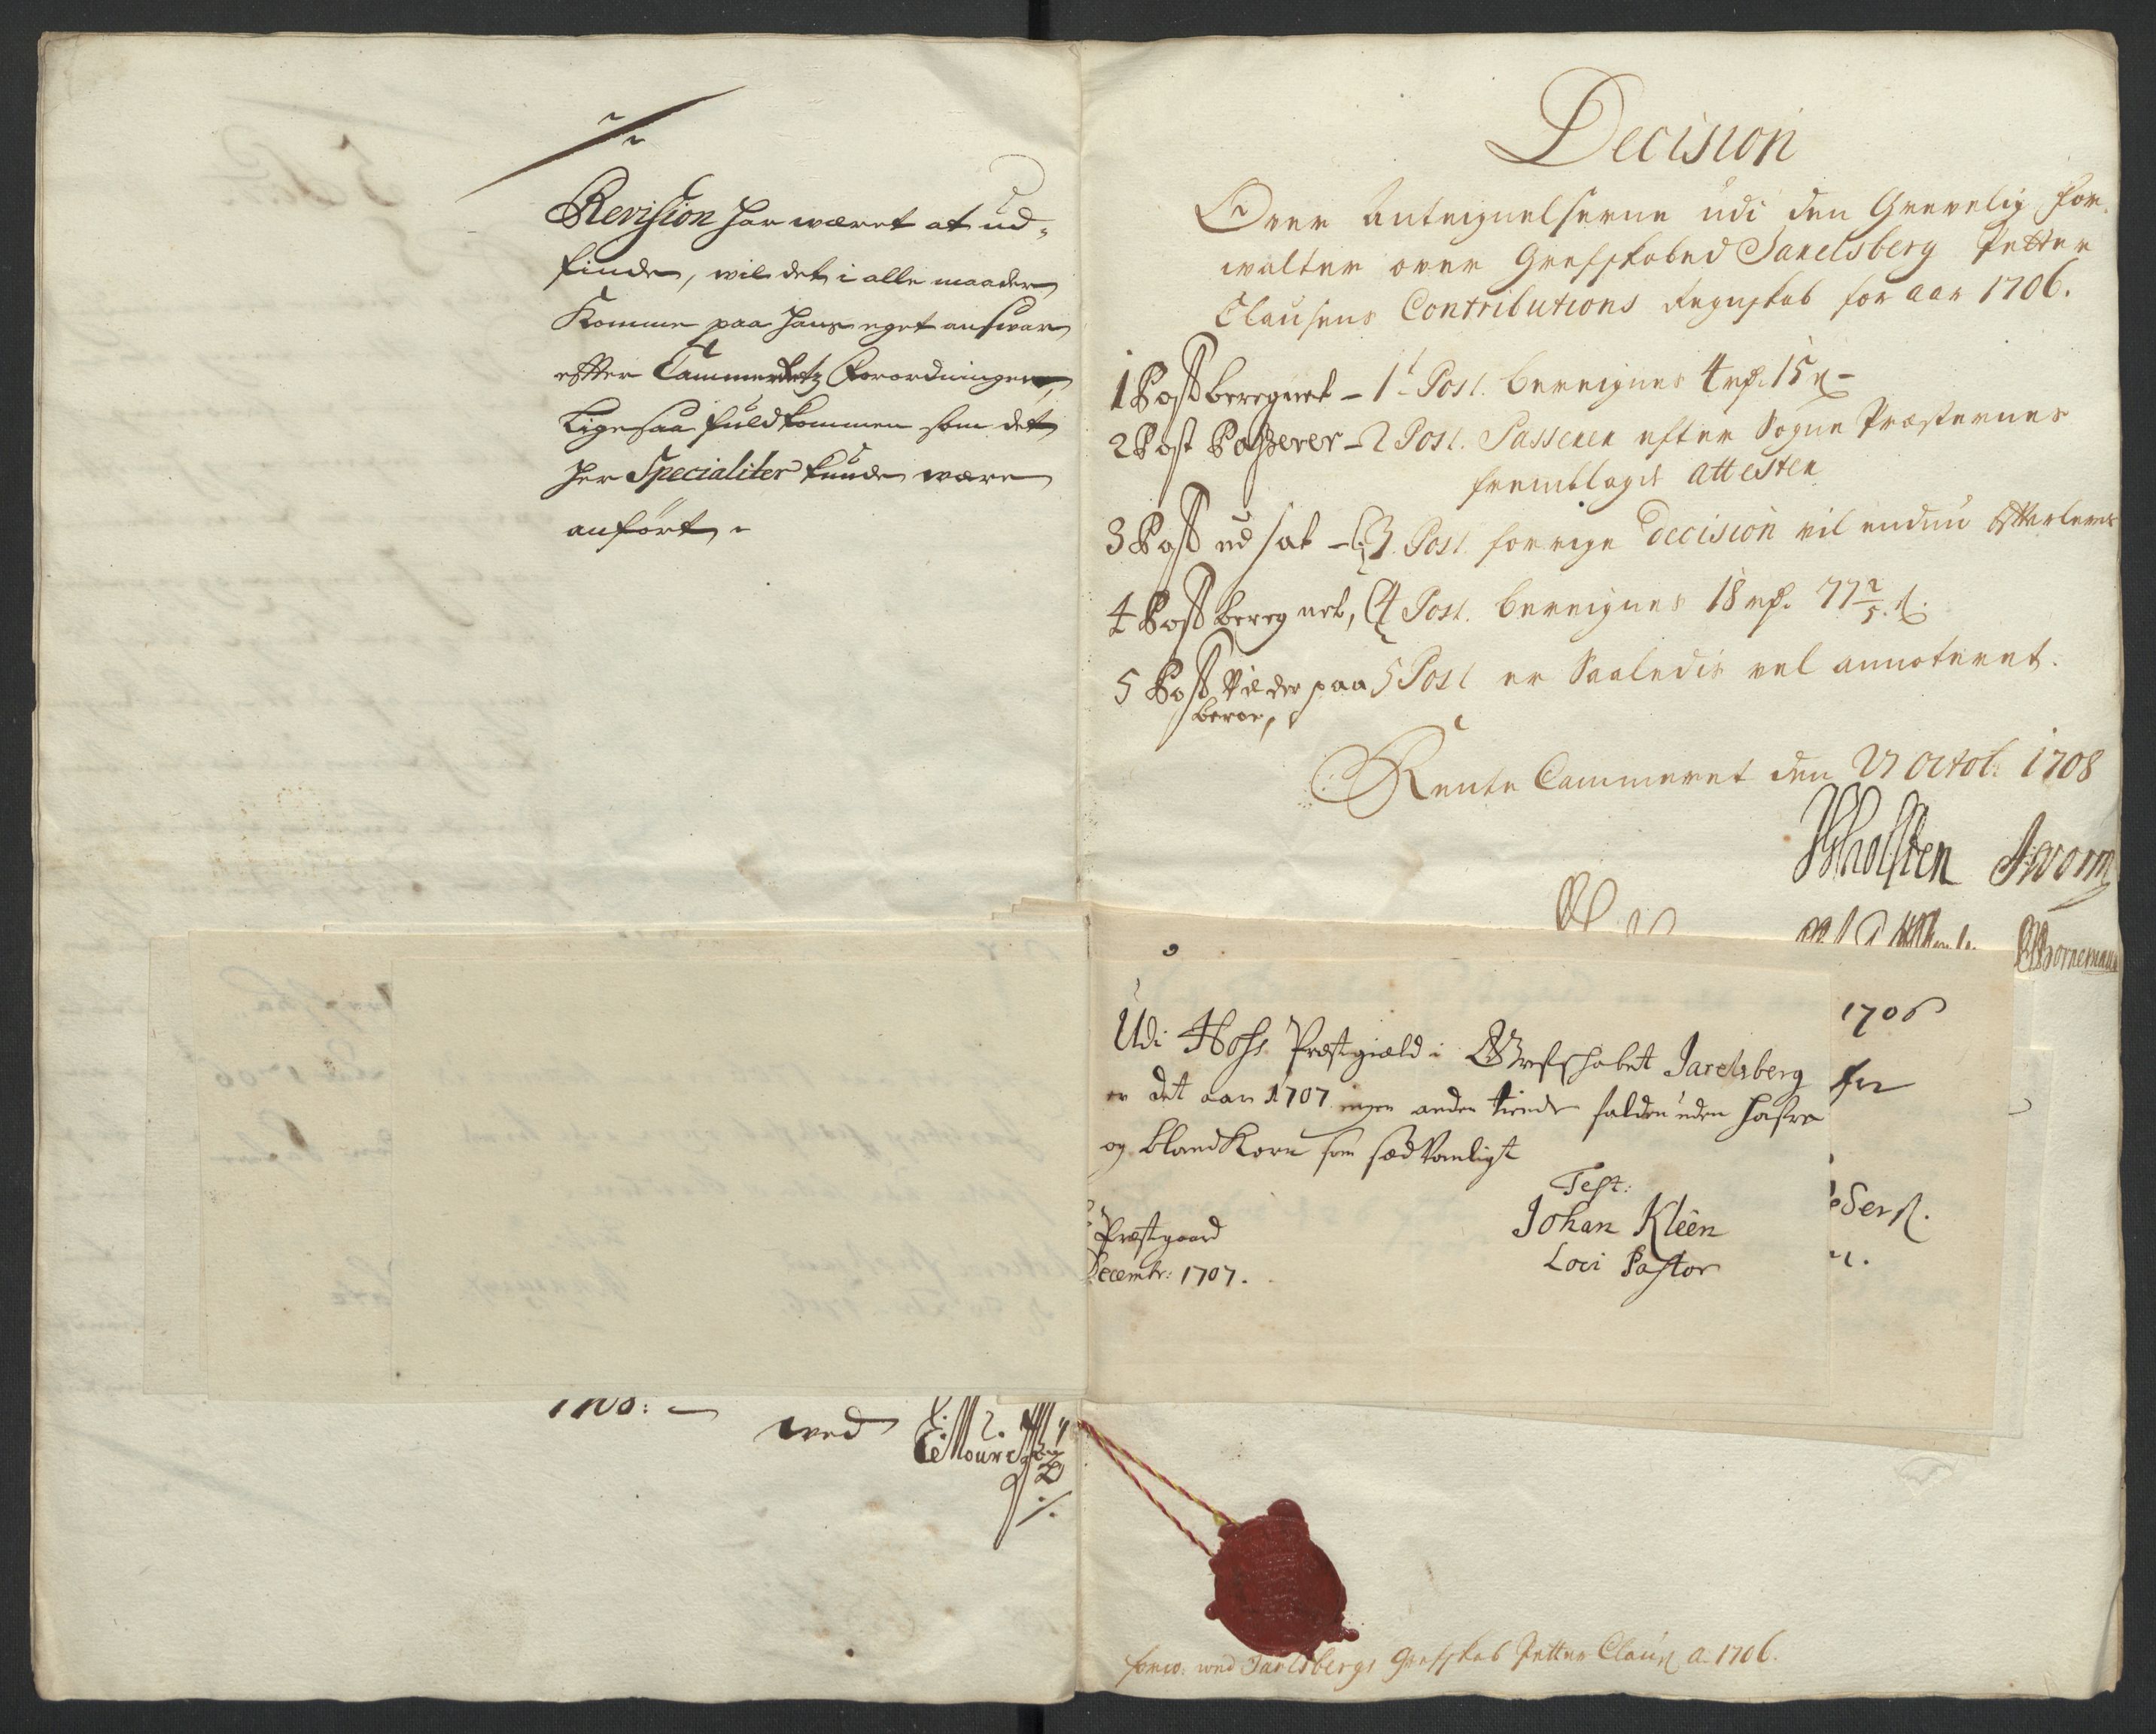 Revision har wæret at ud-
finde, wil det i alle maader
Komme paa hans eget answar
efter Cammer Forordningen,
Ligesaa fuldkommen som det
her Specialiter kunde være
anført.
ved
Decision
Over Anteignelserne udi den Grevelig For-
walter over Grefskabed Jarelsberg Petter
Clausens Contributions Regnskab for aar 1706.
1 Post beregnet - 1t Post. bereignes 4 rd. 15 s -
2 Post Passerer - 2 Post. Passerer efter Sogne Præsternes
fremblagde attester
3 Post ud sat - 3. Post. forrige Decision vil endnu efterleves
4 Post bereg net, 4 Post. bereignes 18 rd. 77 2/5 s.
5 Post Vil der paa 5 Post er Saaledis vel annoteret.
beroe,
Rente Cammeret den 27 Octob: 1708
Holsten JWorm
Bornemann
Udi Hofs Præstegield i Grefschabet Jarelsberg
er det aar 1707 ingen anden tiende falden uden hafre
og bland Korn som sædvanligt
Test:
Johan Kleen
Loci Pastor
Præstgaard
Decembr: 1707.
1706
for
ved Jarlsbergs Grefskab Petter Claus: A: 1706.